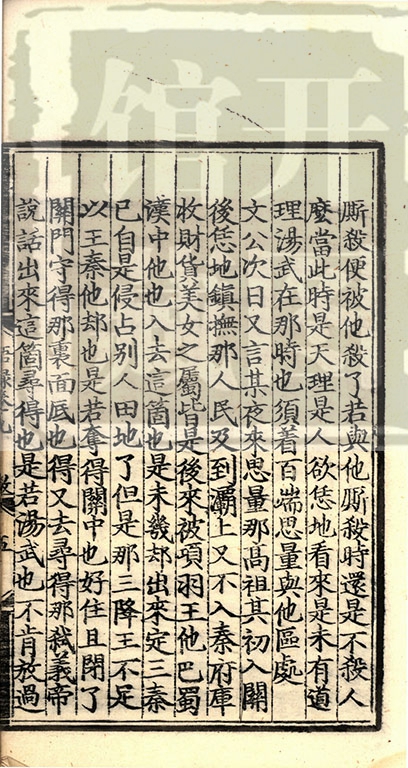 厮殺便被他殺了若與他厮殺時還是不殺人
麽當此時是天理是人欲恁地看來是未有道
理湯武在那時也須着百端思量與他區處
文公次日又言某夜來思量那高祖其初入關
後恁地鎮撫那人民及到灞上又不入秦府庫
收財貨美女之屬皆是後來被項羽王他巴蜀
漢中他也入去這箇也是未幾却出來定三秦
已自是侵占別人田地了但是那三降王不足
以王秦他却也是若奪得關中也好住且閉了
關門守得那裏面底也得又去尋得那弒義帝
說話出來這箇尋得也是若湯武也不肯放過